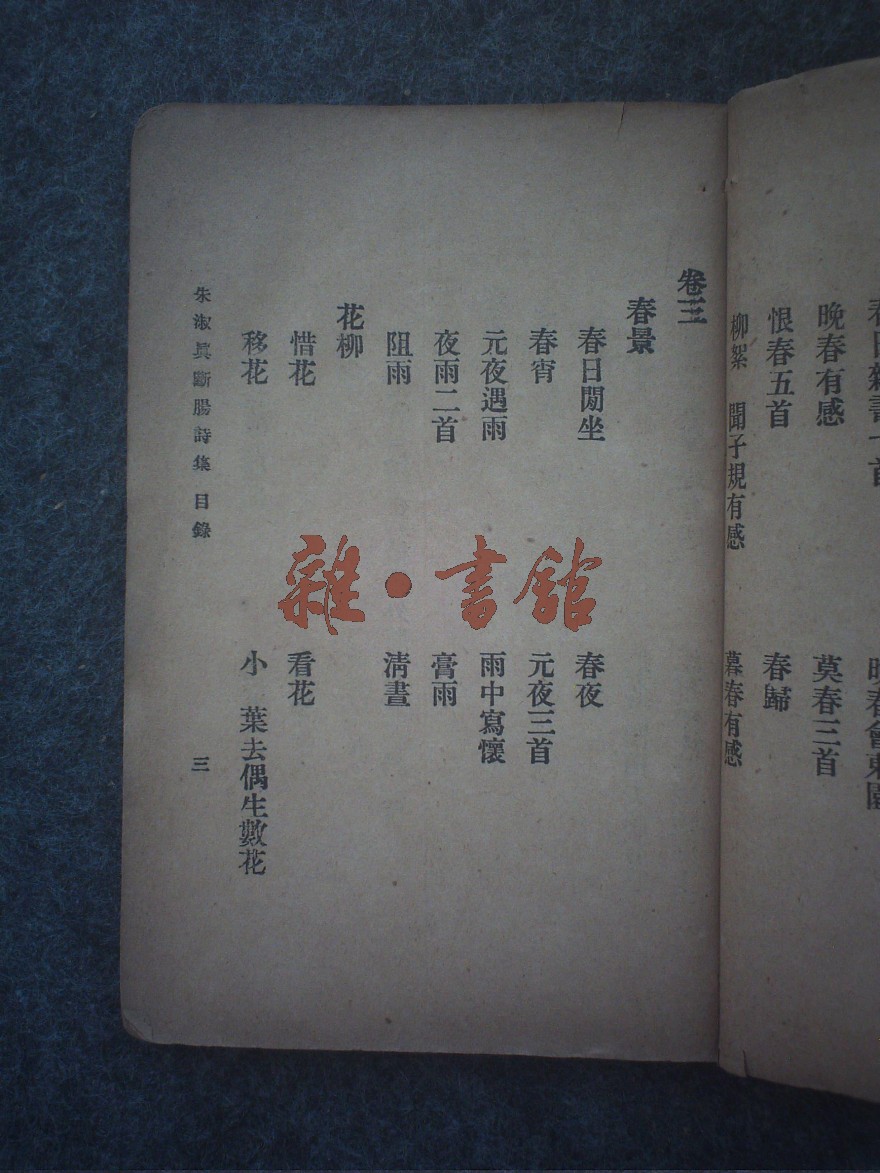 春日雜書十首
晚春會東園
晚春有感
莫春三首
恨春五首
春歸
柳絮　聞子規有感
暮春有感
卷三
春景
春日閒坐
春夜
春宵
元夜三首
元夜遇雨
雨中寫懷
夜雨二首
膏雨
阻雨
清晝
花柳
惜花
看花
移花
小　葉去偶生數花
朱淑眞斷腸詩集　目錄
三
雜·書館